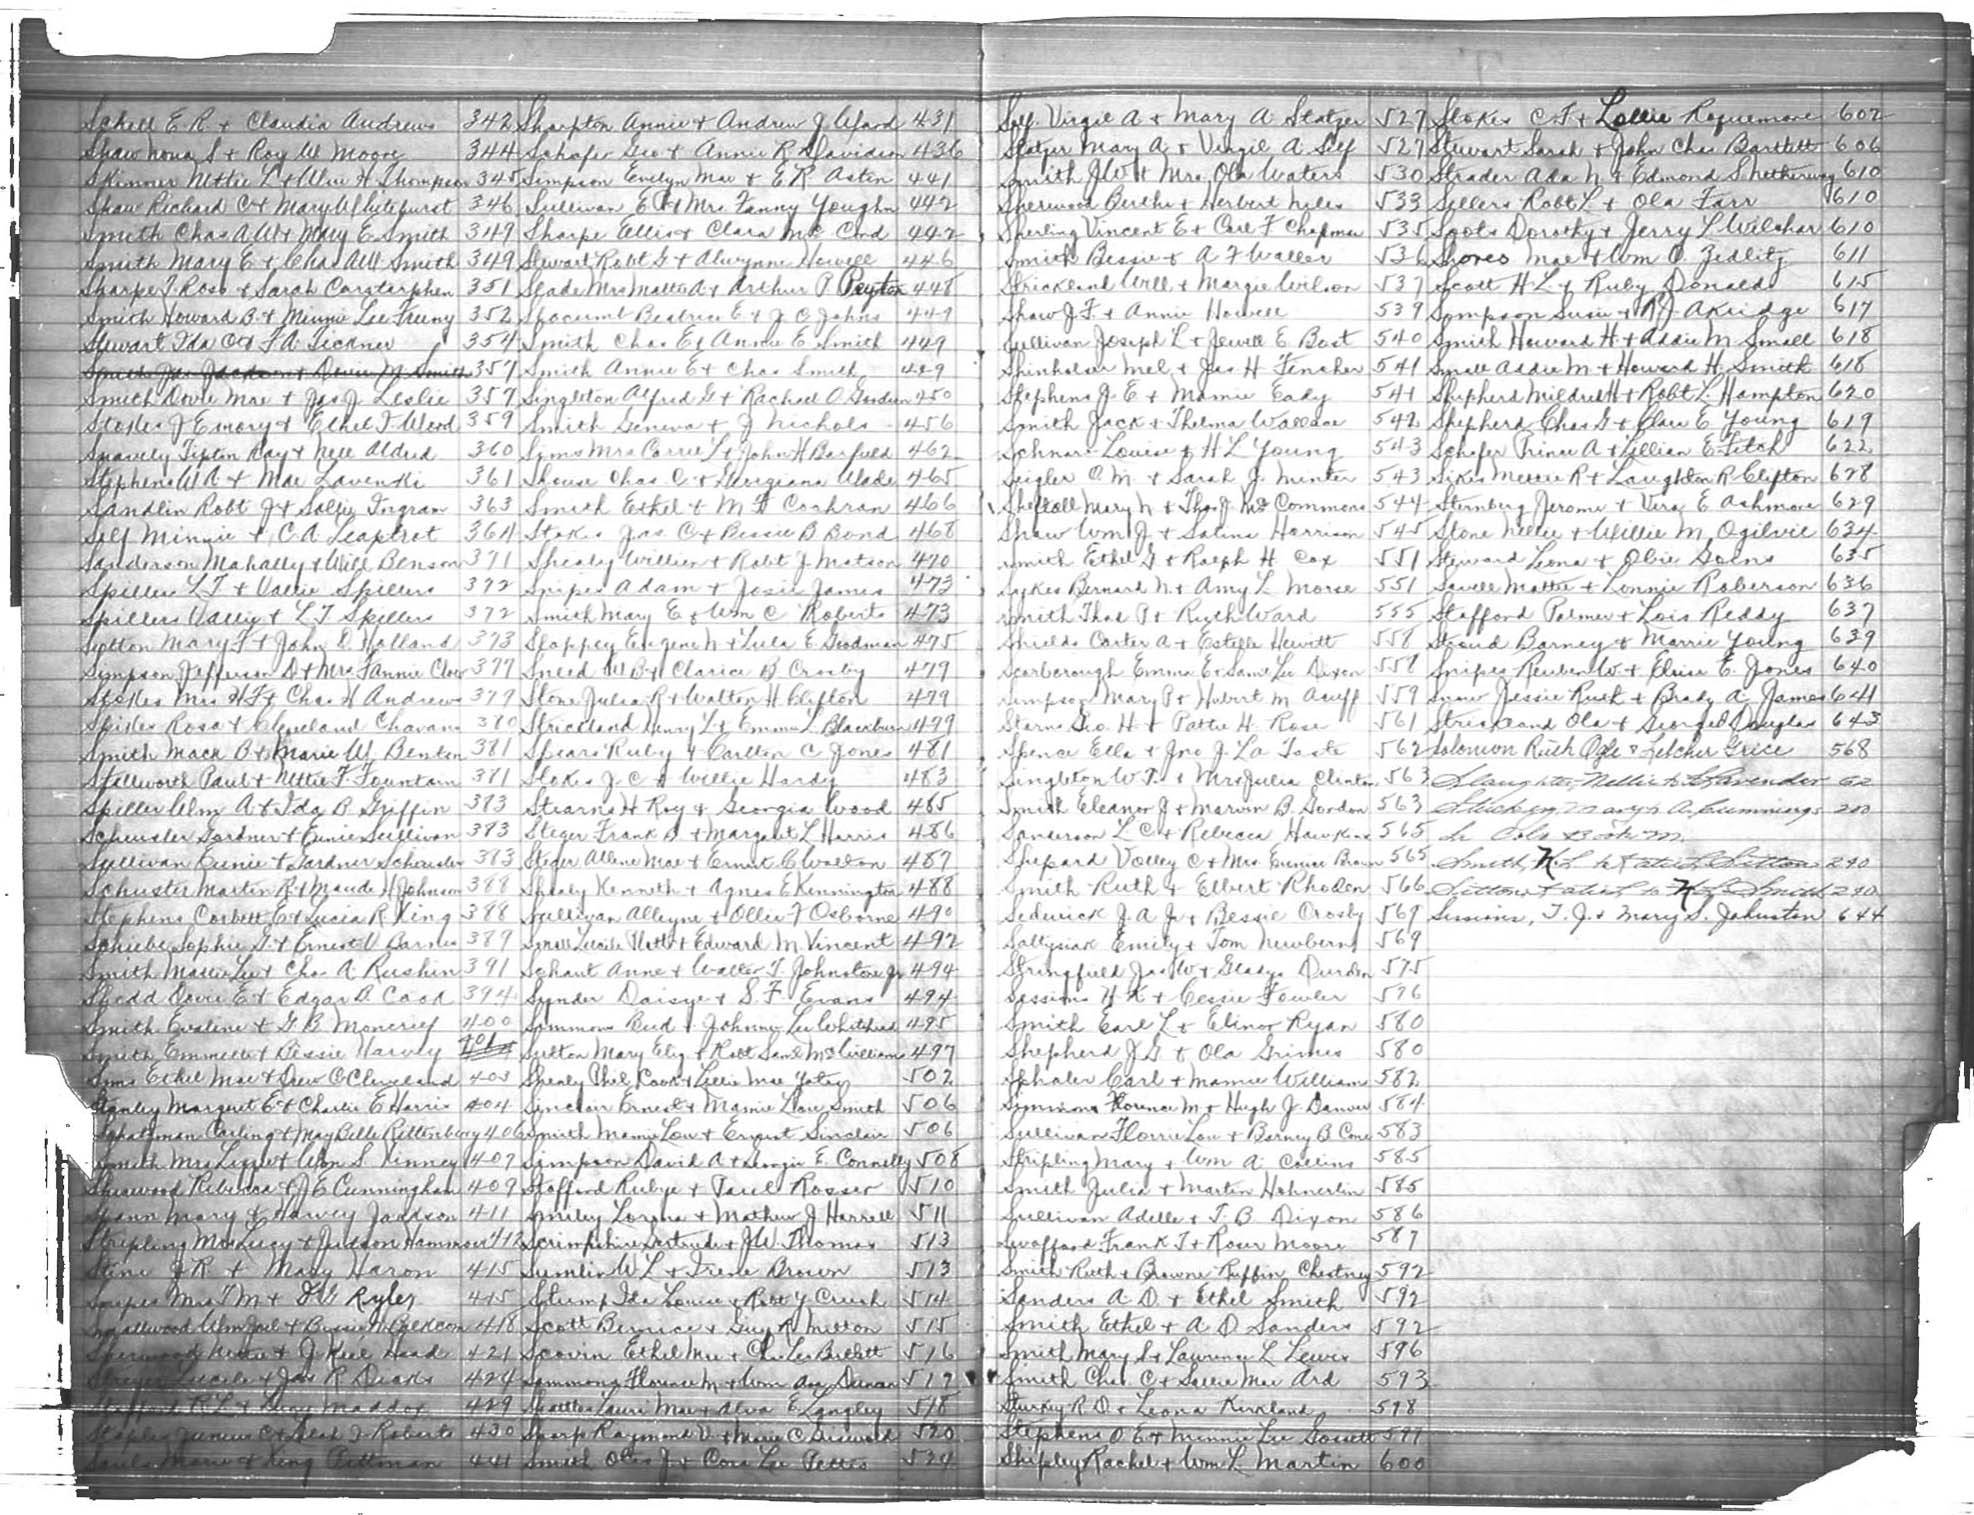 Schell E R + Claudia Andrews 342
Shaw Nona S + Roy W Moore 344
Skinner Nettie L + Alvin H Thompson 345
Shaw Richard C + Mary Whitehurst 346
Smith Chas A W + Mary E Smith 349
Smith Mary E + Chas A W Smith 349
Sharpe J Ross + Sarah Carstarphen 351
Smith Howard B + Minnie Lee Freeny 352
Stewart Ida O + F A Tickner 354
Smith Jas Jackson + Dovie M Smith 357
Smith Dovie Mae + Jas J Leslie 357
Stokes J Emory + Ethel F Wood 359
Snavely Tipton Ray + Nell Aldred 360
Stephens W A + Mae Lavenki 361
Sandlin Robt J + Sallie Ingram 363
Self Minnie + C A Leaptrot 364
Sanderson Mahally + Will Benson 371
Spillers L T + Vallie Spillers 372
Spillers Vallie + L T Spillers 372
Sutton Mary F + John D Holland 373
Simpson Jefferson D + Mrs Fannie Clow 377
Stokes Mrs H F + Chas H Andrews 377
Spikes Rosa + Cleveland Chavans 380
Smith Mack B + Marie W Benton 381
Stallworth Paul + Nettie F Fountain 381
Spiller Wm A + Ida B Griffin 383
Schuster Gardner + Eunie Sullivan 383
Sullivan Eunie + Gardner Schuster 383
Schuster Martin R + Maude H Johnson 388
Stephens Corbett E + Lucia R King 388
Schiebe Sophie G + Ernest V Barnes 389
Smith Mattie Lee + Chas A Rushin 391
Shedd Dovie E + Edgar B Cook 394
Smith Evaline + G B Moncrief 400
Smith Emmette + Bessie Harvey 401
Sims Ethel Mae + Drew C Cleveland 403
Stanley Margaret E + Charlie E Harris 404
Spatzman Carling + May Belle Rittenberry 406
Smith Mrs Lizzie + Wm S Kinney 407
Sherwood Rebecca + J E Cunningham 409
Spann Mary + Harvey Jackson 411
Stripling Mrs Lucy + Judson Hammock 412
Stine J R + Mary Haron 415
Snipes Mrs T M + D G Ryles 415
Smallwood Wm Joel + Bessie M Calhoun 418
Sherwood Nettie + J Keel Head 421
Streyer Lucile + Jas R Deaks 424
Stafford R L + Mary Maddox 429
Stapler Junius C + Leah J Roberts 430
Sauls Marie + King Pittman 441
Sharpton Annie + Andrew J Afford 431
Schafer Geo + Annie R Davidson 436
Simpson Evelyn Mae + E R Asten 441
Sullivan E R + Mrs Fanny Youghn 442
Sharpe Ellis + Clara Mc Cord 442
Stewart Robt G + Alwynne Howell 446
Slade Mrs Mattie A + Arthur P Peyton 448
Slocumb Beatrice E + J C Johns 449
Smith Chas E + Annie E Smith 449
Smith Annie E + Chas Smith 449
Singleton Alfred G + Rachael O Gordon 450
Smith Geneva + J Nichols 456
Syms Mrs Carrie L + John H Barfield 462
Shouse Chas C + Georgiana Wade 465
Smith Ethel + M F Cochran 466
Stokes Jas C + Bessie B Bond 468
Shealy Willien + Robt J Matson 470
Snipes Adam + Josie James 473
Smith Mary E + Wm C Roberts 473
Stappey Eugene N + Lula E Goodman 475
Sneed W B + Clarice B Crosby 479
Stone Julia R + Walton H Clifton 479
Strickland Henry L + Emma L Blackburn 479
Spears Ruby + Carlton C Jones 481
Stokes J C + Willie Hardy 483
Stearns H Roy + Georgia Wood 485
Steger Frank B + Margaret L Harris 486
Steger Allene Mae + Ernest C Walton 487
Shealy Kenneth + Agnes E Kennington 488
Sullivan Alleyne + Ollie F Osborne 490
Small Lucile Hatt + Edward M Vincent 492
Schant Anne + Walter T Johnstone Jr 494
Synder Daisye + S F Evans 494
Sammons Bud + Johnny Lee Whitehead 495
Sutton Mary Eliz + Robt Saml McWilliams 497
Shealy Phel Cook + Lillie Mae Yates 502
Sinclair Ernest + Mamie Lou Smith 506
Smith Mamie Lou + Ernest Sinclair 506
Simpson David A + Georgie E Connelly 508
Stafford Rubye + Paul Rosser 510
Smiley Lorena + Mathew J Harrell 511
Scrimpshire Gertrude + J W Thomas 513
Sumlin W L + Irene Brown 513
Stump Ida Louise + Robt Y Crush 514
Scott Bernice + Guy R Milton 515
Scovin Ethel Mae + Chas Lee Birchett 516
Sammons Florence M + Wm Asa Duncan 517
Seattles Laurie Mae + Alva E Langley 518
Sharp Raymond V + Marie C Griswold 520
Smith Otis J + Cora Lee Pettis 524
Self Virgil A + Mary A Statzer 527
Statzer Mary A + Virgil A Self 527
Smith J W + Mrs Ola Waters 530
Sherwood Bertha + Herbert Niles 533
Sperling Vincent E + Carl F Chapman 535
Smith Bessie + A F Waller 536
Strickland Will + Margie Wilson 537
Shaw J F + Annie Howell 539
Sullivan Joseph L + Jewell E Bast 540
Shinholser Mel + Jas H Fincher 541
Stephens J E + Mamie Eady 541
Smith Jack + Thelma Wallace 542
Schnars Louise + H L Young 543
Seigler O M + Sarah J Minter 543
Sheftall Mary N + Thos J McCommons 544
Shaw Wm J + Salina Harrison 545
Smith Ethel G + Ralph H Cox 551
Sykes Bernard N + Amy L Morse 551
Smith Thad P + Ruth Ward 555
Shields Carter A + Estelle Hewitt 558
Scarborough Emma E + Saml Lee Dixon 558
Simpson Mary P + Hubert M Acuff 559
Starns Geo H + Pattie H Rose 561
Spence Ella + Jno J La Taste 562
Singleton W T + Mrs Julia Clinton 563
Smith Eleanor J + Marvin B Gordon 563
Sanderson L C + Rebecca Hawkins 565
Shepard Volley C + Mrs Eunice Brown 565
Smith Ruth + Elbert Rhoden 566
Sederick J A Jr + Bessie Crosby 569
Saltysiak Emily + Tom Newbern 569
Stringfield Jas W + Gladys Durden 575
Sessions H K + Cessie Fowler 576
Smith Earl L + Elinor Ryan 580
Shepherd J G + Ola Grimes 580
Sphaler Carl + Mamie Williams 582
Simmons Florence M + Hugh J Danver 584
Sullivan Florrie Lou + Barney B Cone 583
Stripling Mary + Wm A Collins 585
Smith Julia + Martin Hohnerlin 585
Sullivan Adelle + T B Dixon 586
Swafford Frank T + Rosier Moore 587
Smith Ruth + Browne Ruffin Chestney 592
Sanders A D + Ethel Smith 592
Smith Ethel + A D Sanders 592
Smith Mary S + Lawrence L Lewis 596
Smith Chas C + Sallie Mae Ard 593
Sturkey R D + Leona Kirkland 598
Stephens O E + Minnie Lee Gossett 591
Shipley Rachel + Wm L Martin 600
Stokes C F + Lollie Roquemore 602
Stewart Sarah + John Chas Bartlett 606
Strader Ada N + Edmond S Netherway 610
Sellers Robt L + Ola Farr 610
Spots Dorothy + Jerry L Wilshar 610
Shores Mae + Wm O Zedlitz 611
Scott H L + Ruby Donalds 615
Sampson Susie + R J Akridge 617
Smith Howard H + Addie M Small 618
Small Addie M + Howard H Smith 618
Shepherd Mildred H + Robt L Hampton 620
Shepherd Chas G + Clara E Young 619
Schafer Prince A + Lillian E Fitch 622
Sikes Mettie R + Laughton R Clifton 628
Sternberg Jerome + Vera E Ashmore 629
Stone Nellie + Willie M Ogilvie 634
Steward Leona + Obie Goens 635
Sawell Mattie + Lonnie Roberson 636
Stafford Palmer + Lois Reddy 637
Stroud Barney + Marrie Young 639
Snipes Reuben W + Elvise E Jones 640
Snow Jessie Ruth + Brady A James 641
Strickland Ola + George D Douglas 643
Solomon Ruth Ogle + Letcher Grice 568
Slaughter, Nellie to L Lavender 62
Stuckey, Mary to A. Cummings 200
in Cold Book M.
Smith, K L to Katie L Sitton 240
Sitton Katie L to K L Smith 240
Sessions, T. J. + Mary S. Johnston 644